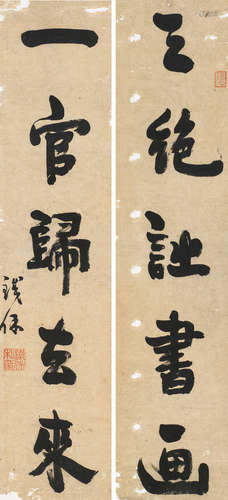 三絕詩書畫
一官歸去來
鐵保